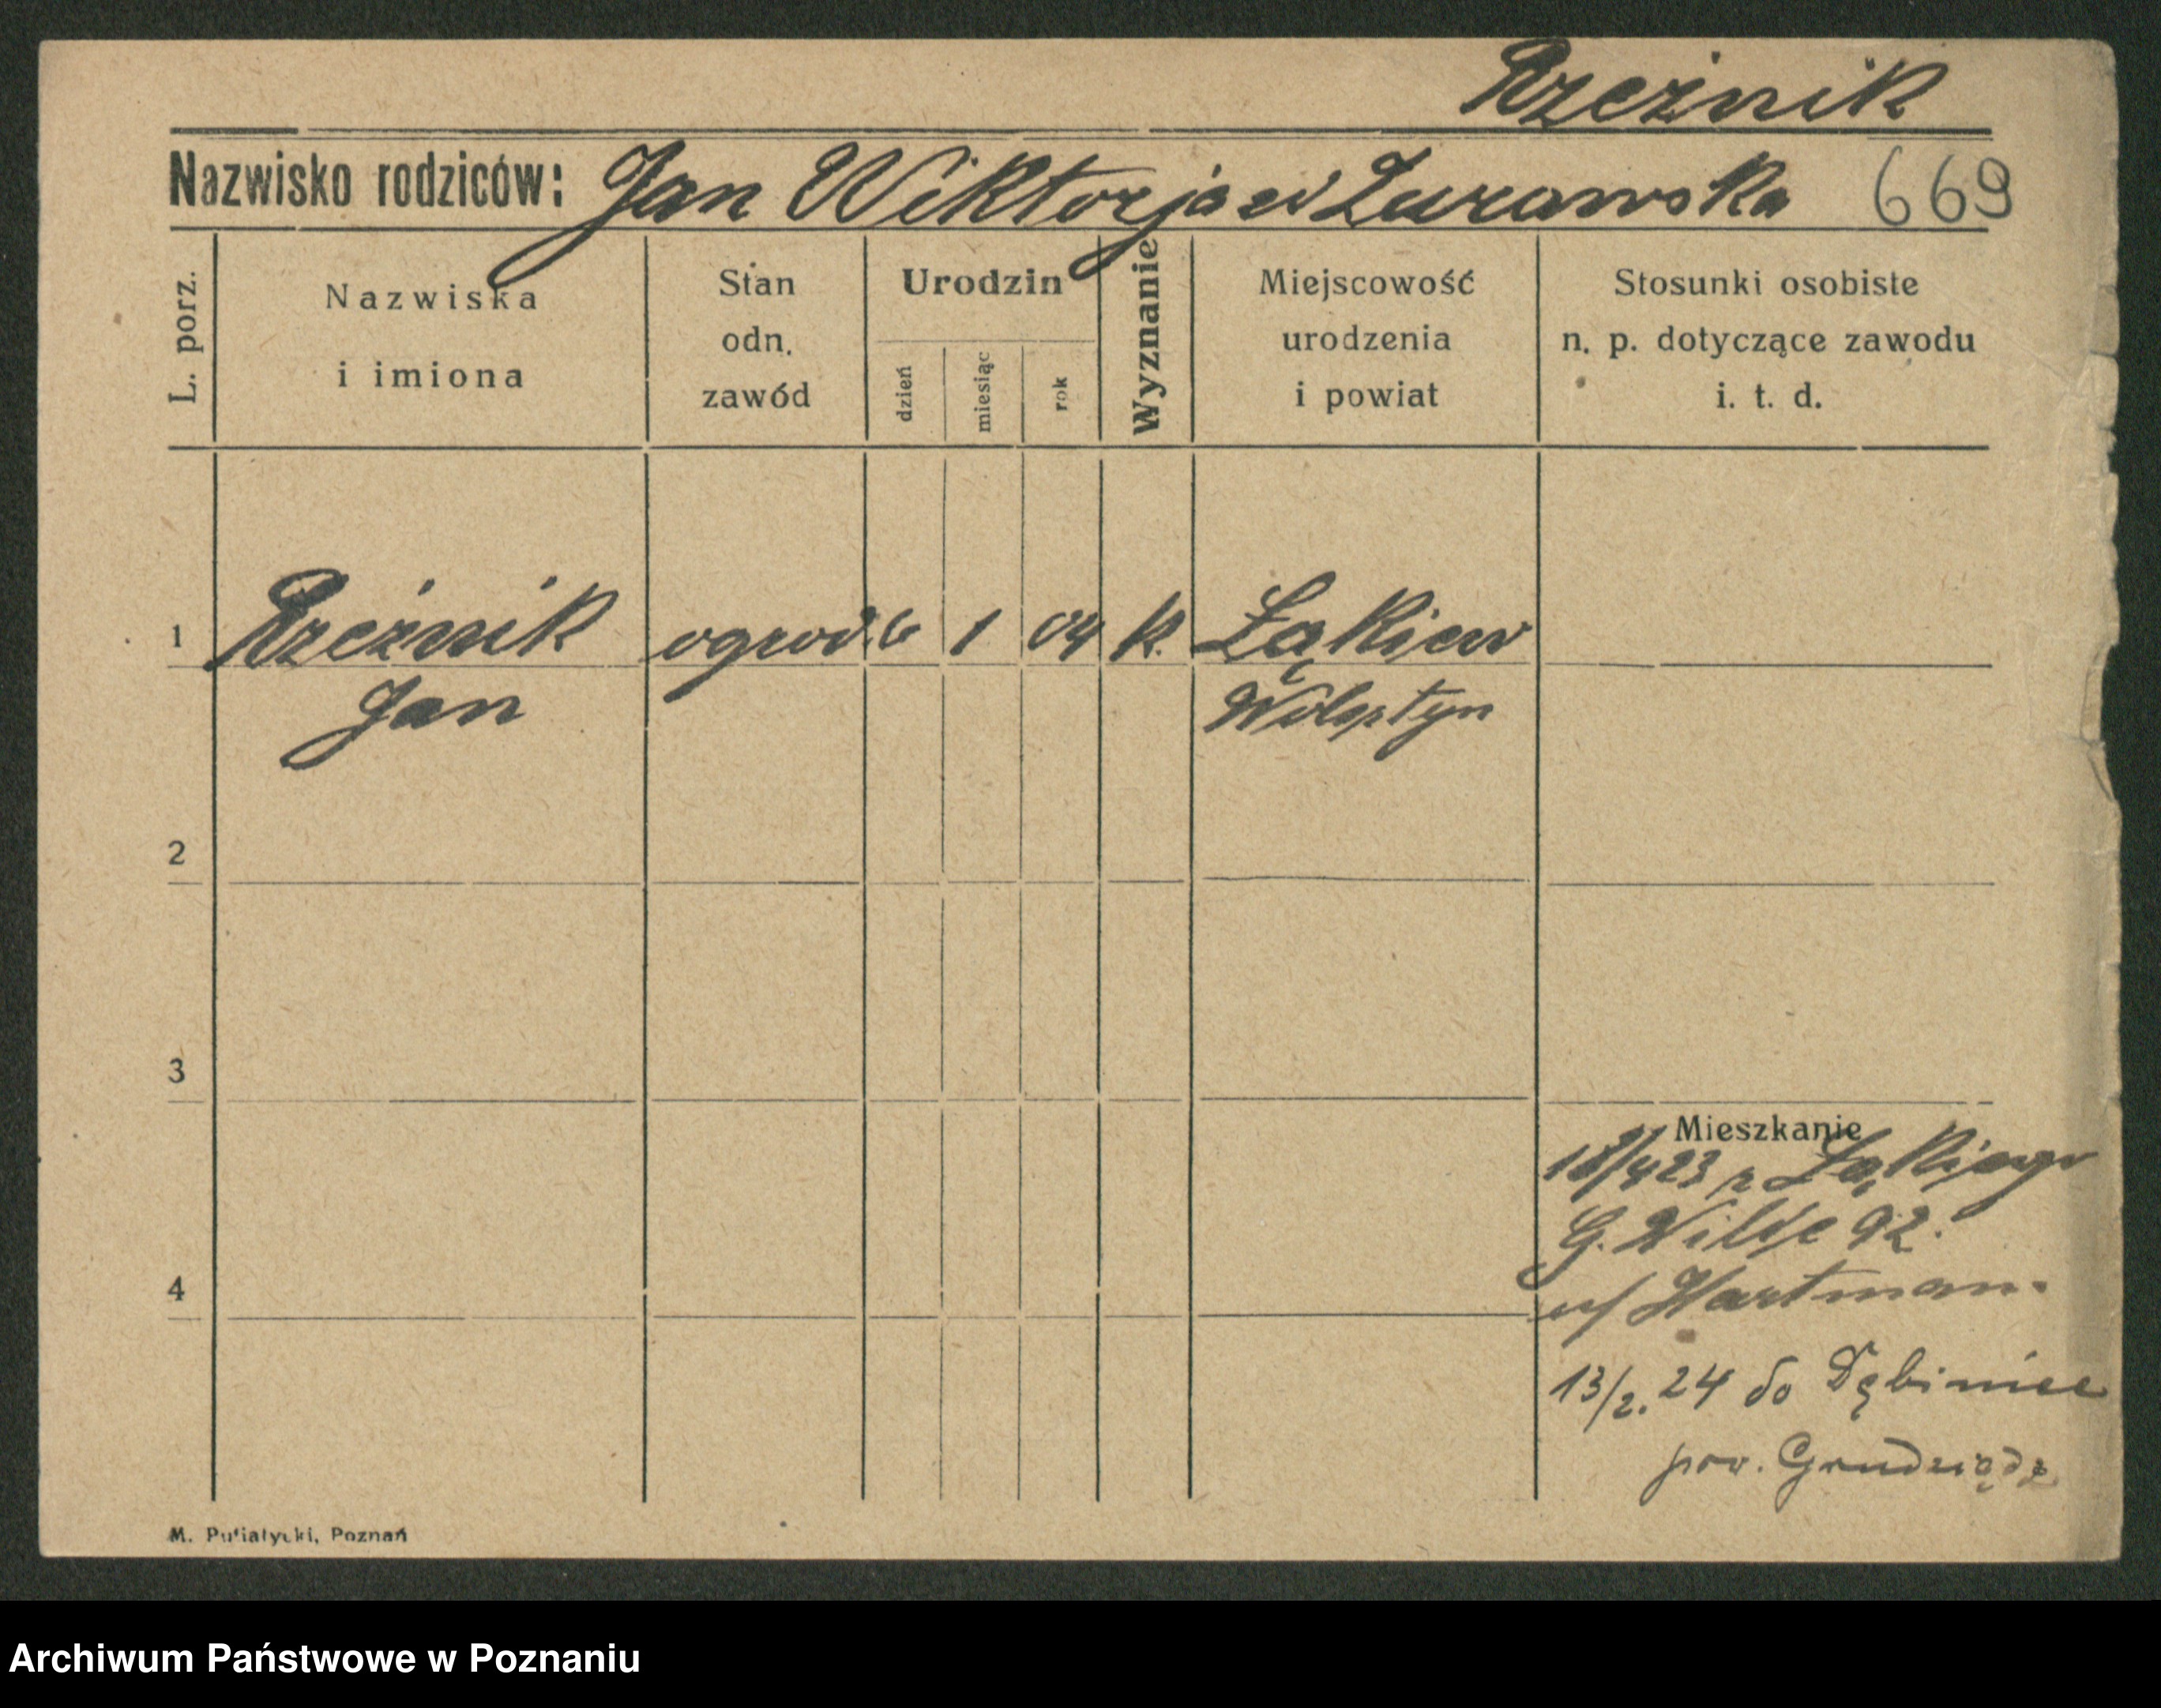 Rzeźnik
Nazwisko rodziców: Jan Wiktorja Żurawska 669
L. porz.
Nazwiska
i imiona
Stan
odn.
zawód
Urodzin
dzień
miesiąc
rok
Wyznanie
Miejscowość
urodzenia
i powiat
Stosunki osobiste
n. p. dotyczące zawodu
i. t. d.
1 Rzeźnik ogrod. 6 1 04 k.
Jan Wolsztyn
2
3
Mieszkanie
18/4 23
G. Wilde 92.
4
Hartman.
13/2. 24 do
pow. Grudziądz
M. Putiatycki, Poznań
Archiwum Państwowe w Poznaniu